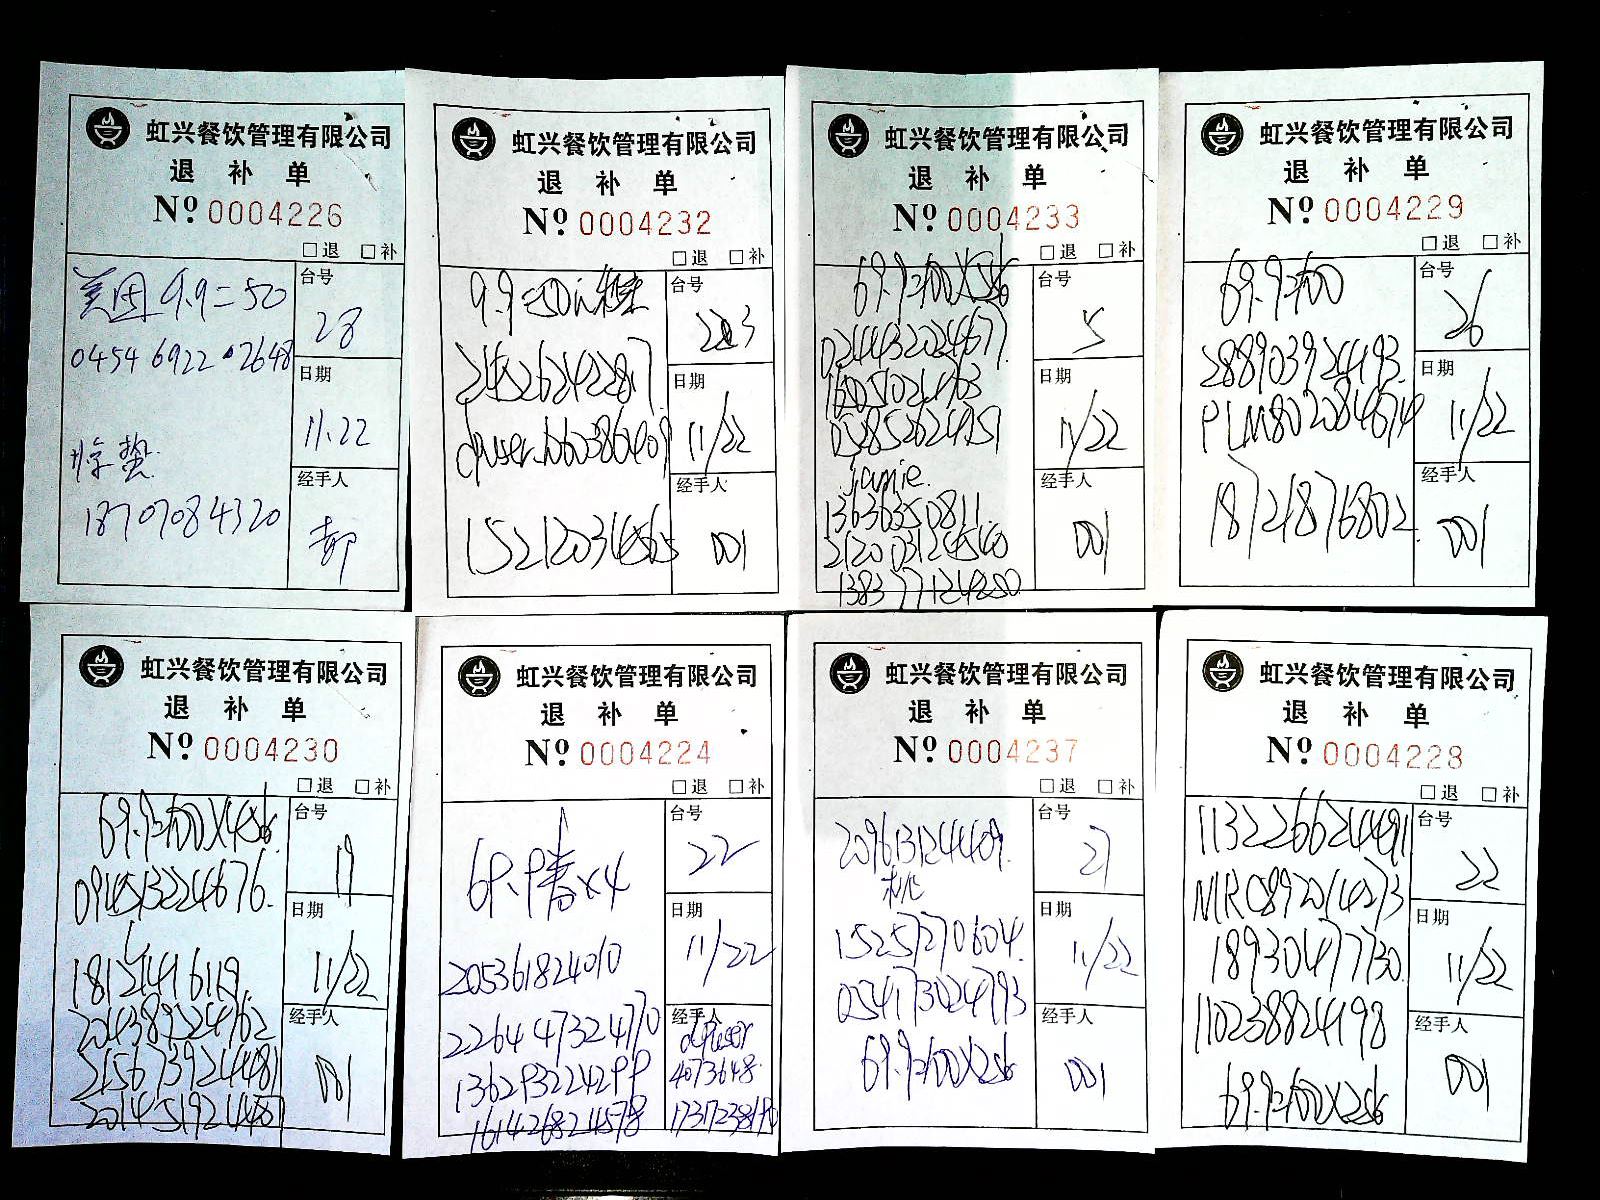 虹兴餐饮管理有限公司
退 补 单
Nº 0004226
□退 □补
美团 9.9=50
0454 6922 2648
18707084320
台号
28
日期
11.22
经手人
虹兴餐饮管理有限公司
退 补 单
Nº 0004232
□退 □补
9.9=50
2145262422817
15212034565
台号
203
日期
11/22
经手人
001
虹兴餐饮管理有限公司
退 补 单
Nº 0004233
□退 □补
69.9=100X
0244432024677
052852624951
jamie.
13636350811
212003124540
138377124250
台号
5
日期
11/22
经手人
001
虹兴餐饮管理有限公司
退 补 单
Nº 0004229
□退 □补
69.9=100
288903924493
PLM802084674
18721876802
台号
26
日期
11/22
经手人
001
虹兴餐饮管理有限公司
退 补 单
Nº 0004230
□退 □补
69.9=100X4
094513224676
18121416119
204389224762
215673924481
201451924487
台号
19
日期
11/22
经手人
001
虹兴餐饮管理有限公司
退 补 单
Nº 0004224
□退 □补
69.9 X4
205361824010
226447324770
136293224299
161426824578
台号
22
日期
11/22
经手人
dpuser
4073648
虹兴餐饮管理有限公司
退 补 单
Nº 0004237
□退 □补
209613124409
桃
15257270604
054173024793
69.9=100X2
台号
21
日期
11/22
经手人
001
虹兴餐饮管理有限公司
退 补 单
Nº 0004228
□退 □补
113226624491
MR0892014273
18930477730
110238824198
69.9=100X2
台号
22
日期
11/22
经手人
001